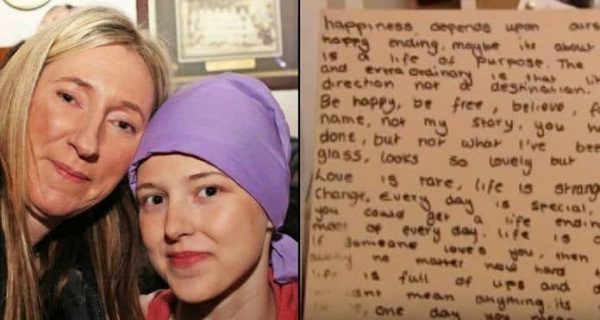 happiness depends upon ours
happy ending, maybe its about
is a life of purpose. The
and extraordinary is that li
direction not a destination.
Be happy, be free, believe, fo
name, not my story, you ha
done, but not what I've bee
glass, looks so lovely but
Love is rare, life is strang
Change, every day is special,
you could get a life endin
most of every day. life is
If someone loves you, then
no matter how hard
life is full of ups and d
mean anything. its
one day you